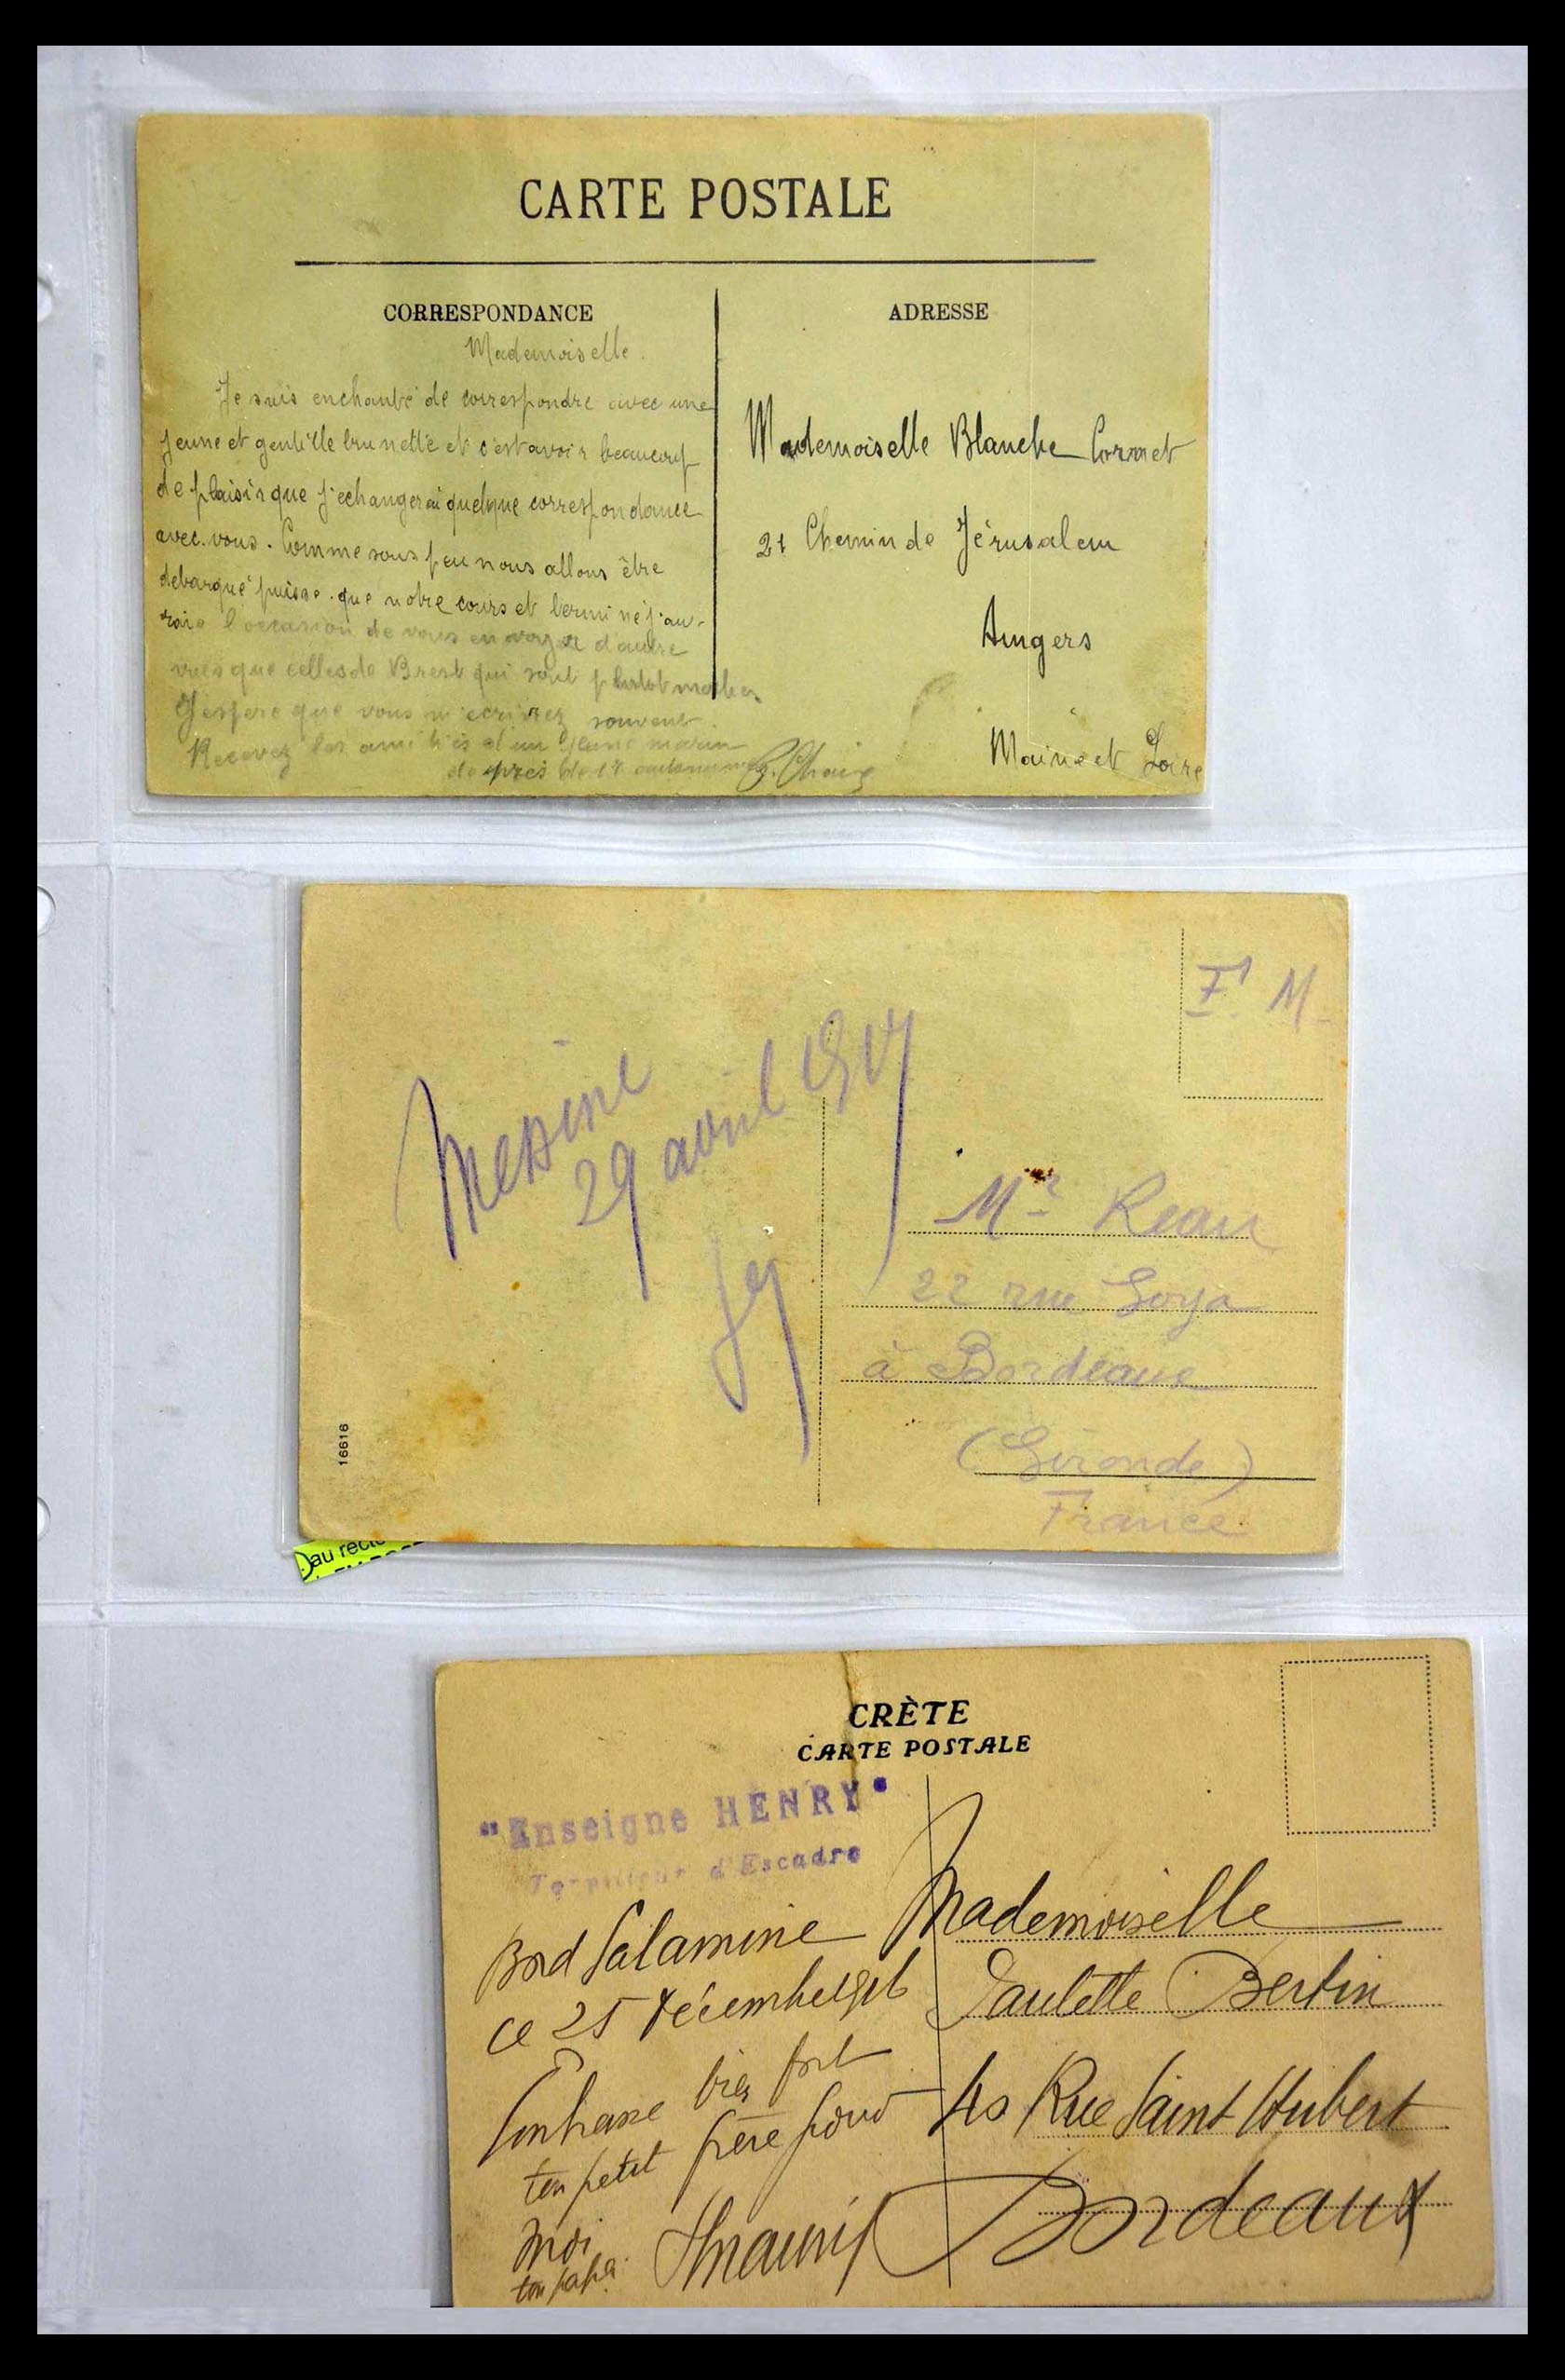 CARTE POSTALE
CORRESPONDANCE
Mademoiselle.
Je suis enchanté de correspondre avec une
jeune et gentille brunette et c'est avoir beaucoup
de plaisir que j'echangerai quelque correspondance
avec vous. Comme sous peu nous allons être
debarqué puisse que notre cours et terminé j'au-
rais l'occasion de vous envoyer d'autre
vues que celles de Brest qui sont plutot
J'espere que vous m'ecrirez souvent.
Recevez les amitiés d'un jeune marin
de près de 17
ADRESSE
Mademoiselle Blanche Cormet
21 Chemin de Jérusalem
Angers
Maine et Loire
F. M.
Messine
29 avril 1917
Mr Reau
22 rue Goya
à Bordeaux
(Gironde)
France
16616
au recto
CRÈTE
CARTE POSTALE
"Enseigne HENRY"
Torpilleur d'Escadre
Bord Salamine
ce 25 Décembre 1916
Embrasse bien fort
ton petit frère pour
moi
ton papa.
Mademoiselle
Paulette Bertin
40 Rue Saint Hubert
Bordeaux